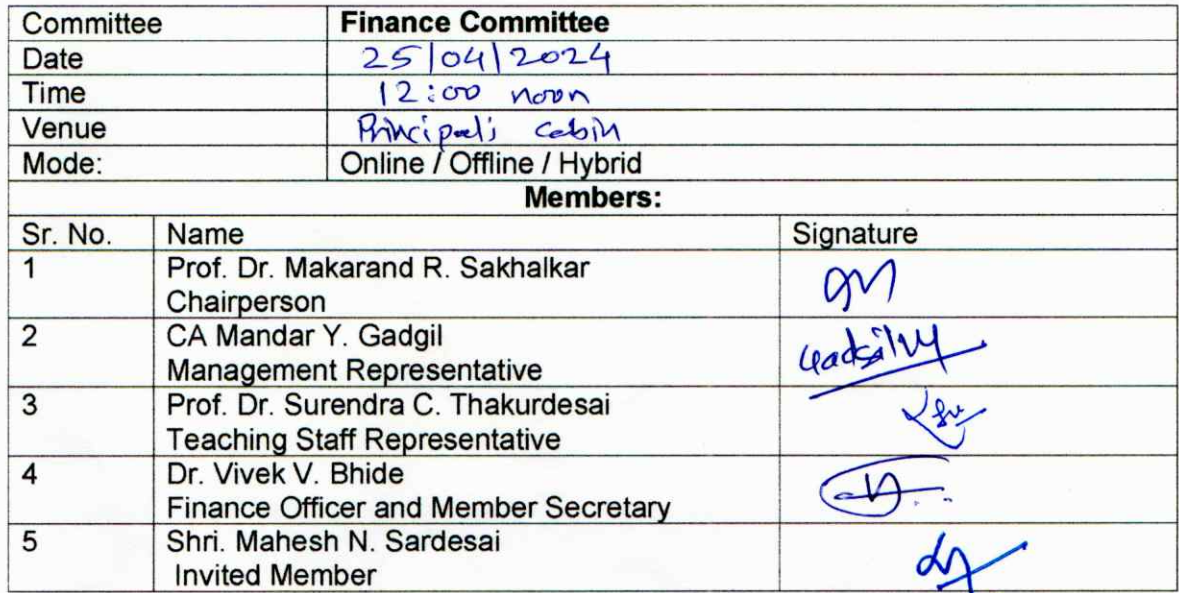 Committee Finance Committee
Date 25/04/2024
Time 12:00 noon
Venue Principal's cabin
Mode: Online / Offline / Hybrid
Members:
Sr. No. Name Signature
1 Prof. Dr. Makarand R. Sakhalkar
Chairperson
2 CA Mandar Y. Gadgil
Management Representative
3 Prof. Dr. Surendra C. Thakurdesai
Teaching Staff Representative
4 Dr. Vivek V. Bhide
Finance Officer and Member Secretary
5 Shri. Mahesh N. Sardesai
Invited Member